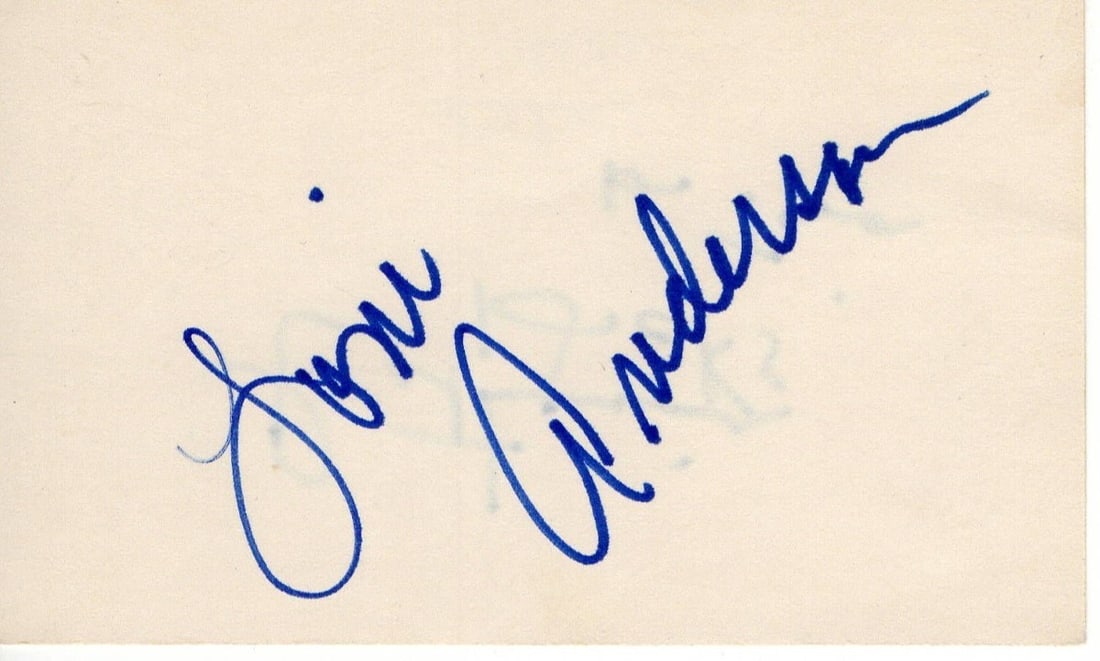 Loni
Anderson